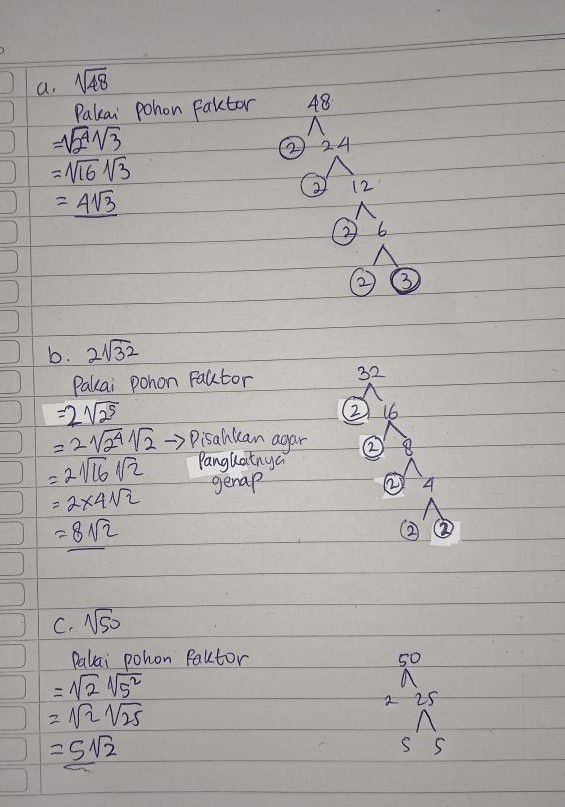 a. √48
Pakai pohon faktor
=√2⁴√3
=√16 √3
= 4√3
48
2 24
2 12
2 6
2 3
b. 2√32
Pakai pohon Faktor
=2√2⁵
=2√2⁴√2 → Pisahkan agar
Pangkatnya
genap
=2√16 √2
=2×4√2
=8√2
32
2 16
2 8
2 4
2 2
c. √50
Pakai pohon Faktor
=√2 √5²
=√2 √25
=5√2
50
2 25
5 5